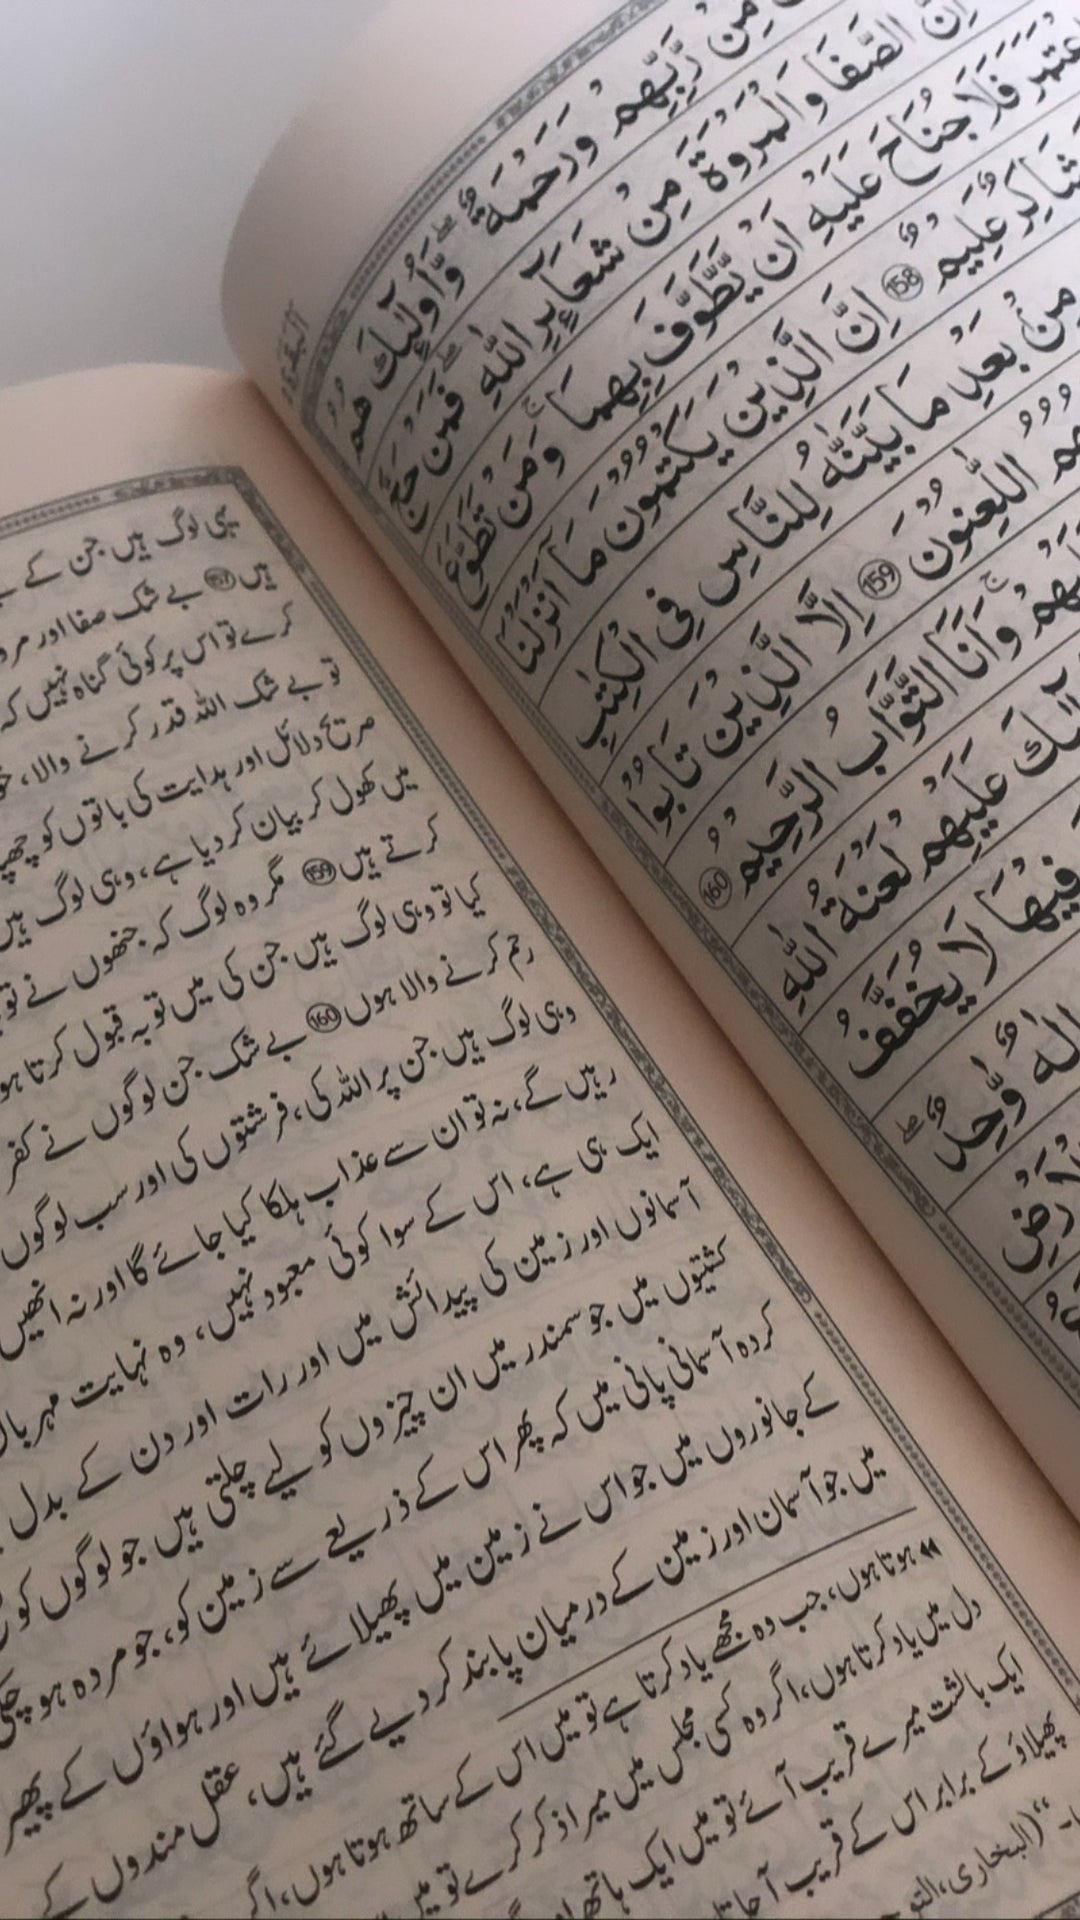 البقرة
مِّنْ رَّبِّهِمْ وَرَحْمَةٌ ۖ وَأُولٰٓئِكَ هُمُ
اِنَّ الصَّفَا وَالْمَرْوَةَ مِنْ شَعَآئِرِ اللّٰهِ ۚ فَمَنْ حَجَّ
فَلَا جُنَاحَ عَلَيْهِ اَنْ يَّطَّوَّفَ بِهِمَا ۚ وَمَنْ تَطَوَّعَ
شَاكِرٌ عَلِيْمٌ 158 اِنَّ الَّذِيْنَ يَكْتُمُوْنَ مَآ اَنْزَلْنَا
مِنْ بَعْدِ مَا بَيَّنّٰهُ لِلنَّاسِ فِى الْكِتٰبِ
اللّٰعِنُوْنَ 159 اِلَّا الَّذِيْنَ تَابُوْا
وَاَنَا التَّوَّابُ الرَّحِيْمُ 160
عَلَيْهِمْ لَعْنَةُ اللّٰهِ
فِيْهَا لَا يُخَفَّفُ
اِلٰهٌ وَّاحِدٌ ۖ
یہی لوگ ہیں جن کے
ہیں 157 بے شک صفا اور
کرے تو اس پر کوئی گناہ نہیں کہ
تو بے شک اللہ قدر کرنے والا،
صریح دلائل اور ہدایت کی باتوں کو
میں کھول کر بیان کر دیا ہے، وہی لوگ ہیں
کرتے ہیں 159 مگر وہ لوگ کہ جنھوں نے
کیا تو وہی لوگ ہیں جن کی میں توبہ قبول کرتا
رحم کرنے والا ہوں 160 بے شک جن لوگوں نے کفر
وہی لوگ ہیں جن پر اللہ کی، فرشتوں کی اور سب لوگوں
رہیں گے، نہ تو ان سے عذاب ہلکا کیا جائے گا اور نہ انھیں
ایک ہی ہے، اس کے سوا کوئی معبود نہیں، وہ نہایت
آسمانوں اور زمین کی پیدائش میں اور رات اور دن کے بدل
کشتیوں میں جو سمندر میں ان چیزوں کو لیے چلتی ہیں جو لوگوں کو
کردہ آسمانی پانی میں کہ پھر اس کے ذریعے سے زمین کو، جو مردہ ہو
کے جانوروں میں جو اس نے زمین میں پھیلائے ہیں اور ہواؤں کے پھیر
میں جو آسمان اور زمین کے درمیان پابند کر دیے گئے ہیں، عقل مندوں کے
ہوتا ہوں، جب وہ مجھے یاد کرتا ہے تو میں اس کے ساتھ ہوتا ہوں،
دل میں یاد کرتا ہوں، اگر وہ کسی مجلس میں میرا ذکر کرے تو میں
ایک بالشت میرے قریب آئے تو میں ایک ہاتھ
پھیلاؤ کے برابر اس کے قریب آ
(البخاری،